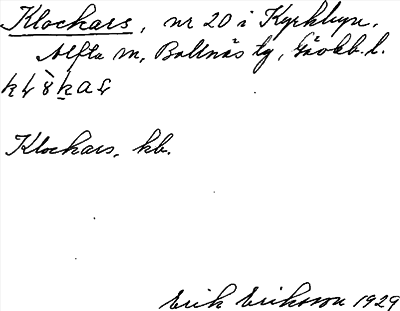 Klockars, nr 20 i Kyrkbyn,
Alfta sn, Bollnäs tg, Gävleb. l.
Klockars, kb.
Erik Eriksson 1929